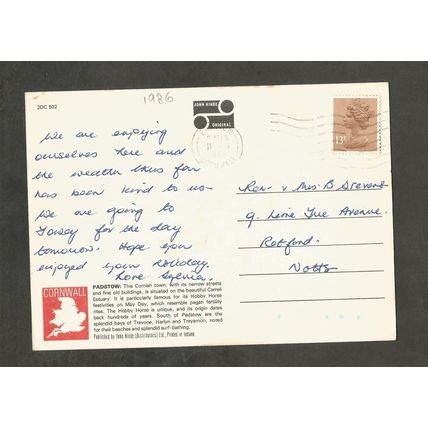 1986
2DC 502
JOHN HINDE
ORIGINAL
13P
We are enjoying
ourselves here and
the weather thus far
has been kind to us-
We are going to
Fowey for the day
tomorrow. Hope you
enjoyed your holiday.
Love Sylvia.
Rev. & Mrs B Stevens
9. Lime Tree Avenue.
Retford.
Notts
CORNWALL
PADSTOW: This Cornish town, with its narrow streets
and fine old buildings, is situated on the beautiful Camel
Estuary. It is particularly famous for its Hobby Horse
festivities on May Day, which resemble pagan fertility
rites. The Hobby Horse is unique, and its origin dates
back hundreds of years. South of Padstow are the
splendid bays of Trevone, Harlyn and Treyarnon, noted
for their beaches and splendid surf-bathing.
Published by John Hinde (Distributors) Ltd., Printed in Ireland.